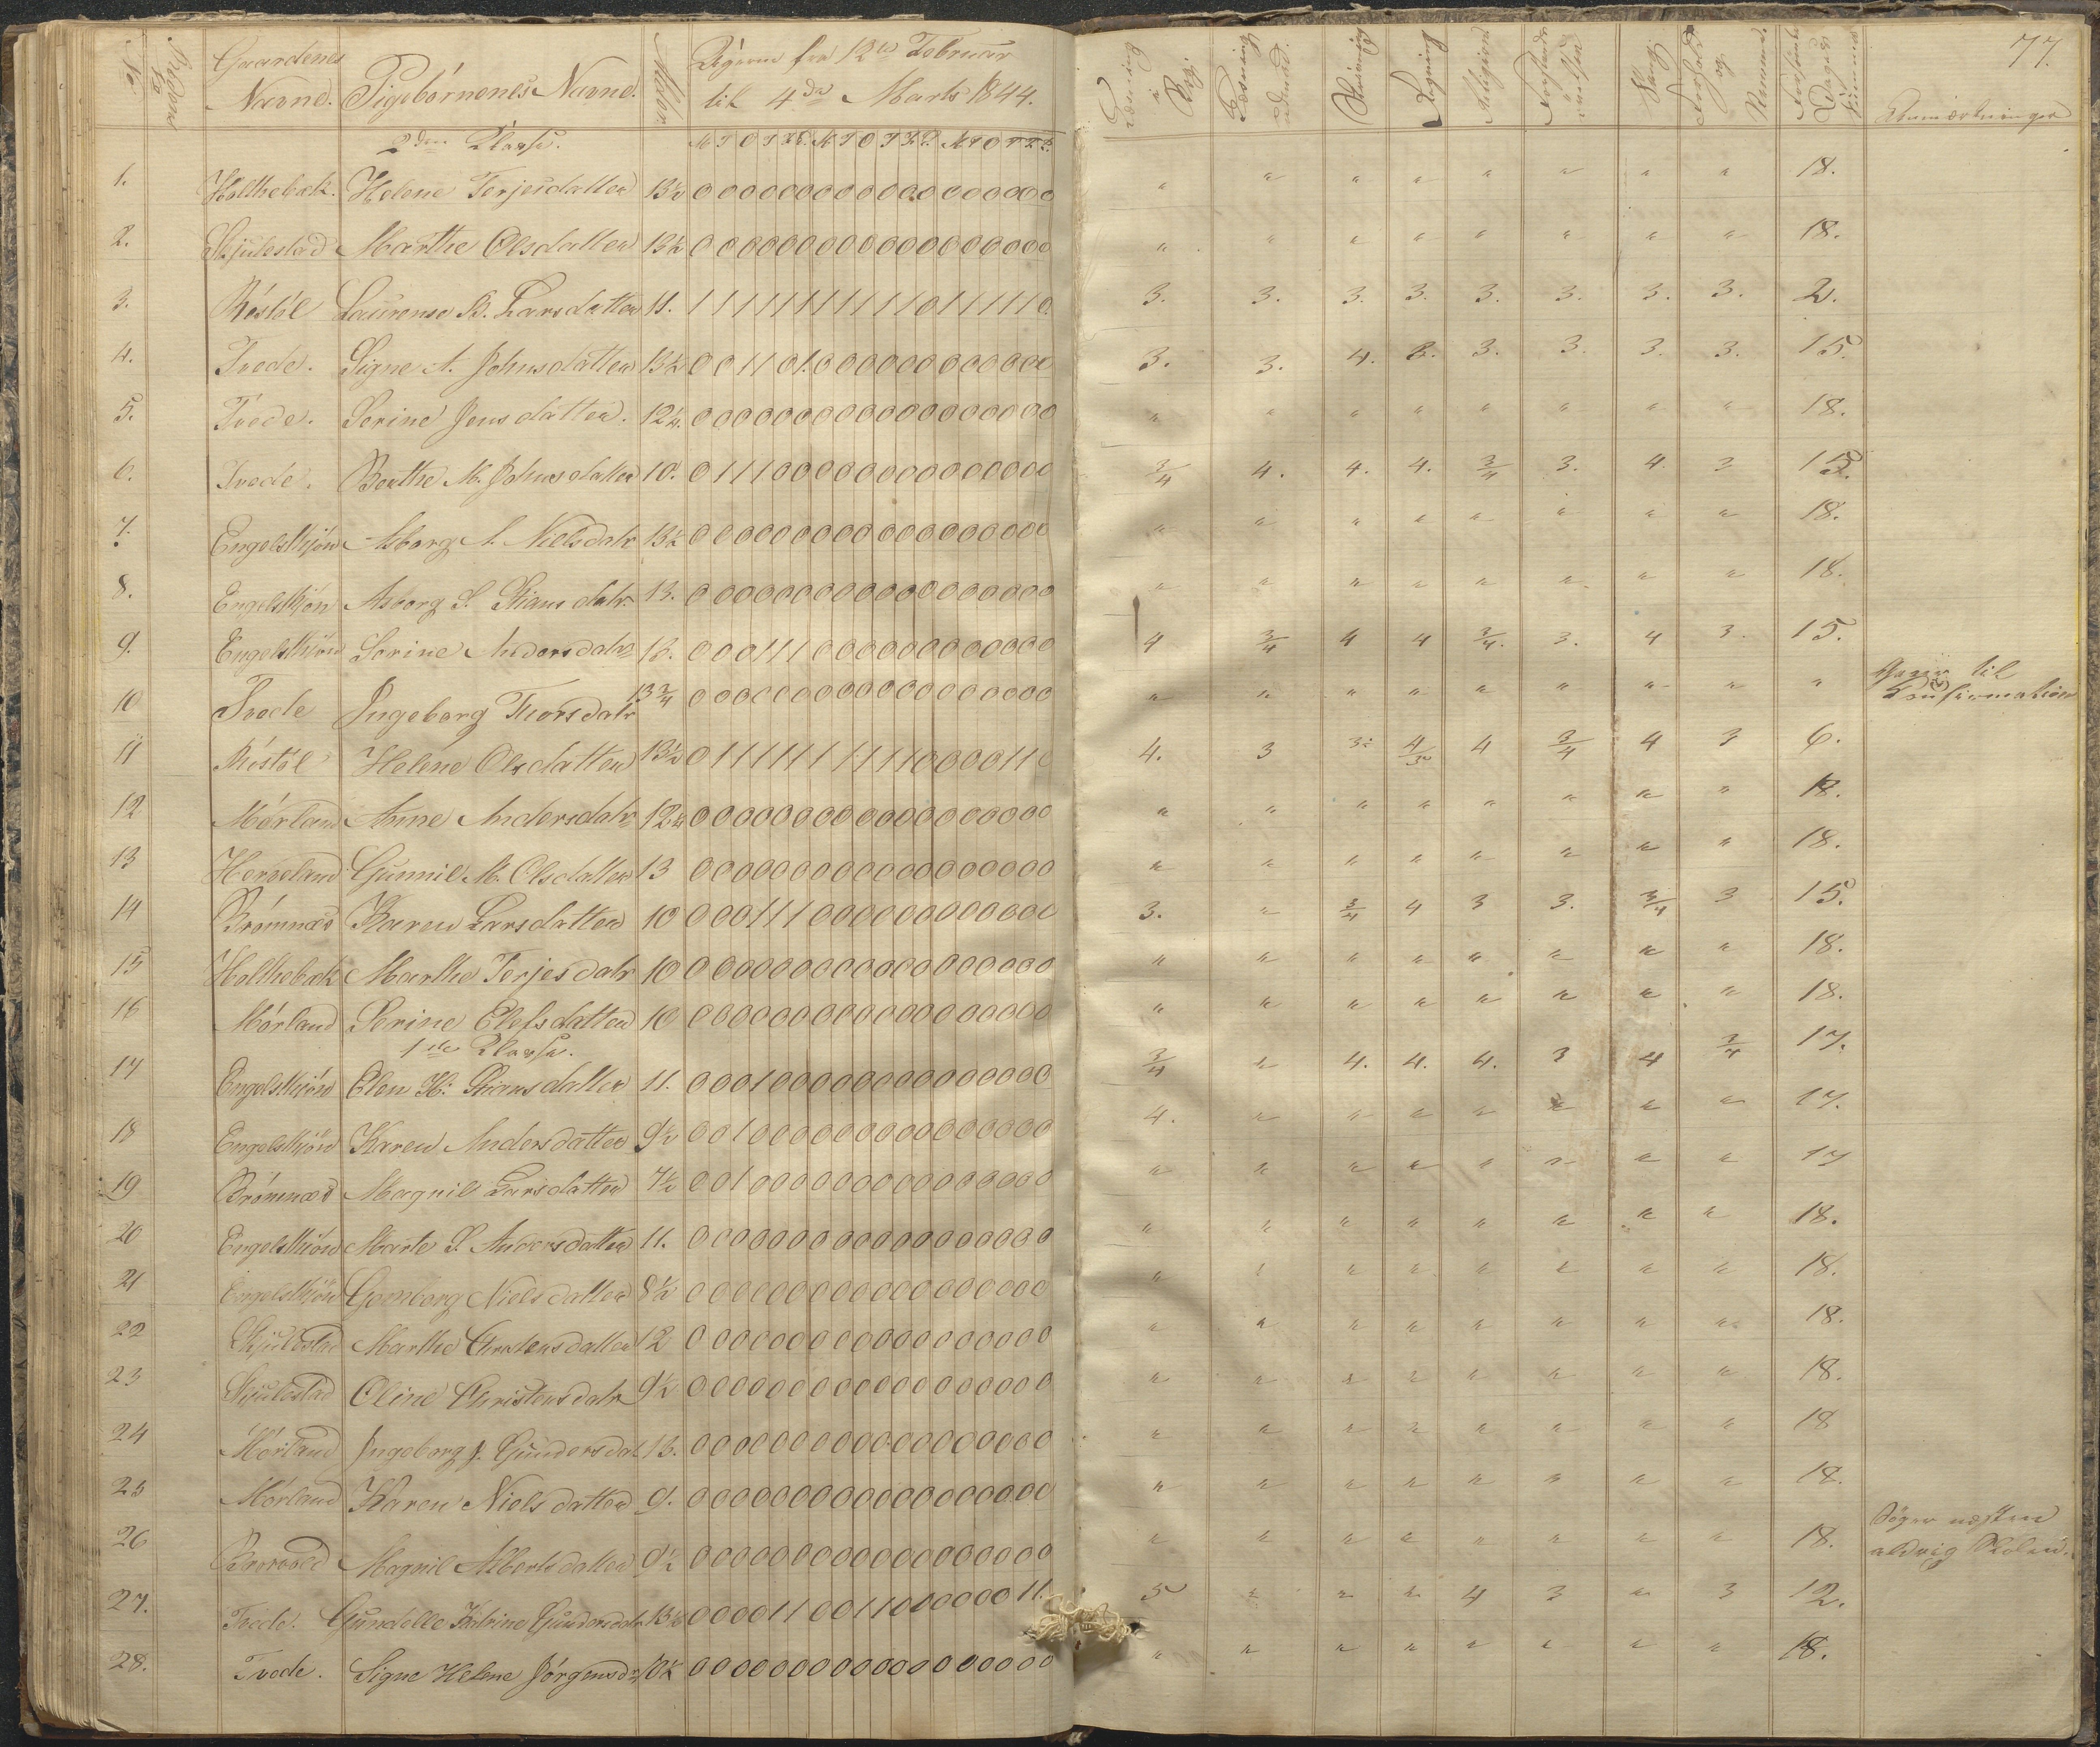 Gaardenes Navne. Pigebørnenes Navne. Alder. Dagene fra 12te Februar til 4de Marts 1844. Læsning i Bog. Læsning udenad. Skrivning Regning Religion Sang Forhold og Anmærkninger 77.
2den Classe. M T O T F L M T O T F L M T O T F L
1. Holthebæk. Helene Terjesdatter 13½ 0 0 0 0 0 0 0 0 0 0 0 0 0 0 0 0 0 0 " " " " " " " " 18.
2. Skjulestad Marthe Olsdatter 13½ 0 0 0 0 0 0 0 0 0 0 0 0 0 0 0 0 0 0 " " " " " " " " 18.
3. Røstøl Laurense B. Larsdatter 11. 1 1 1 1 1 1 1 1 1 1 1 0 1 1 1 1 1 0. 3. 3. 3. 3. 3. 3. 3. 3. 2.
4. Tvede. Signe A. Johnsdatter 13½ 0 0 1 1 0 1. 0 0 0 0 0 0 0 0 0 0 0 0 3. 3. 4. 3. 3. 3. 3. 3. 15.
5. Tvede. Serine Jensdatter. 12½. 0 0 0 0 0 0 0 0 0 0 0 0 0 0 0 0 0 0 " " " " " " " " 18.
6. Tvede. Berthe M. Johnsdatter 10. 0 1 1 1 0 0 0 0 0 0 0 0 0 0 0 0 0 0 3/4 4. 4. 4. 3/4 3. 4 3 15.
7. Engelskjøn Asborg A. Nielsdatr 13½ 0 0 0 0 0 0 0 0 0 0 0 0 0 0 0 0 0 0 " " " " " " " " 18.
8. Engelskjøn Asborg S. datr. 13. 0 0 0 0 0 0 0 0 0 0 0 0 0 0 0 0 0 0 " " " " " " " " 18.
9. Engelskjøn Serine Andersdatr 13. 0 0 0 1 1 1 0 0 0 0 0 0 0 0 0 0 0 0 4 3/4 4 4 3/4. 3. 4 3. 15.
10 Tvede Ingeborg Thorsdatr 13¾ 0 0 0 0 0 0 0 0 0 0 0 0 0 0 0 0 0 0 " " " " " " " " " til Confirmation
11 Røstøl Helene Olsdatter 13½ 0 1 1 1 1 1 1 1 1 1 1 0 0 0 0 1 1 0 4. 3 3 4/3 4 3/4 4 3 6.
12 Mørland Anne Andersdatr 12½ 0 0 0 0 0 0 0 0 0 0 0 0 0 0 0 0 0 0 " " " " " " " " 18.
13 Gunnil M. Olsdatter 13 0 0 0 0 0 0 0 0 0 0 0 0 0 0 0 0 0 0 " " " " " " " " 18.
14 Brømnæs Karen Larsdatter 10 0 0 0 1 1 1 0 0 0 0 0 0 0 0 0 0 0 0 3. " 3/4 4 3 3. 3/4 3 15.
15 Holthebæk Marthe Terjesdatr 10 0 0 0 0 0 0 0 0 0 0 0 0 0 0 0 0 0 0 " " " " " " " " 18.
16 Mørland Serine Elefsdatter 10 0 0 0 0 0 0 0 0 0 0 0 0 0 0 0 0 0 0 " " " " " " " " 18.
1ste Classe.
17 Engelskjøn Elen H. datter 11. 0 0 0 1 0 0 0 0 0 0 0 0 0 0 0 0 0 0 3/4 " 4. 4. 4. 3 4 3/4 17.
18 Engelskjøn Karen Andersdatter 9½ 0 0 1 0 0 0 0 0 0 0 0 0 0 0 0 0 0 0 4. " " " " " " " 17.
19 Brømnæs Magnil Larsdatter 7½ 0 0 1 0 0 0 0 0 0 0 0 0 0 0 0 0 0 0 " " " " " " " " 17
20 Engelskjøn Marte S. Andersdatter 11. 0 0 0 0 0 0 0 0 0 0 0 0 0 0 0 0 0 0 " " " " " " " " 18.
21 Engelskjøn Gomborg Nielsdatter 8½ 0 0 0 0 0 0 0 0 0 0 0 0 0 0 0 0 0 0 " " " " " " " " 18.
22 Skjulestad Marthe Christensdatter 12 0 0 0 0 0 0 0 0 0 0 0 0 0 0 0 0 0 0 " " " " " " " " 18.
23 Skjulestad Oline Christensdatr 9½ 0 0 0 0 0 0 0 0 0 0 0 0 0 0 0 0 0 0 " " " " " " " " 18.
24 Mørland Ingeborg J. Gundersdat 13. 0 0 0 0 0 0 0 0 0 0 0 0 0 0 0 0 0 0 " " " " " " " " 18
25 Mørland Karen Nielsdatter 9. 0 0 0 0 0 0 0 0 0 0 0 0 0 0 0 0 0 0 " " " " " " " " 18.
26 Magnil Albertsdatter 9½ 0 0 0 0 0 0 0 0 0 0 0 0 0 0 0 0 0 0 " " " " " " " " 18. Søger næsten aldrig Skolen.
27. Tvede. Gundelle Katrine Gundersdatr 13½ 0 0 0 0 1 1 0 0 1 1 0 0 0 0 0 0 1 1. 5 " " " 4 3 " 3 12.
28. Tvede. Signe Helene Jørgensdr 10½ 0 0 0 0 0 0 0 0 0 0 0 0 0 0 0 0 0 0 " " " " " " " " 18.